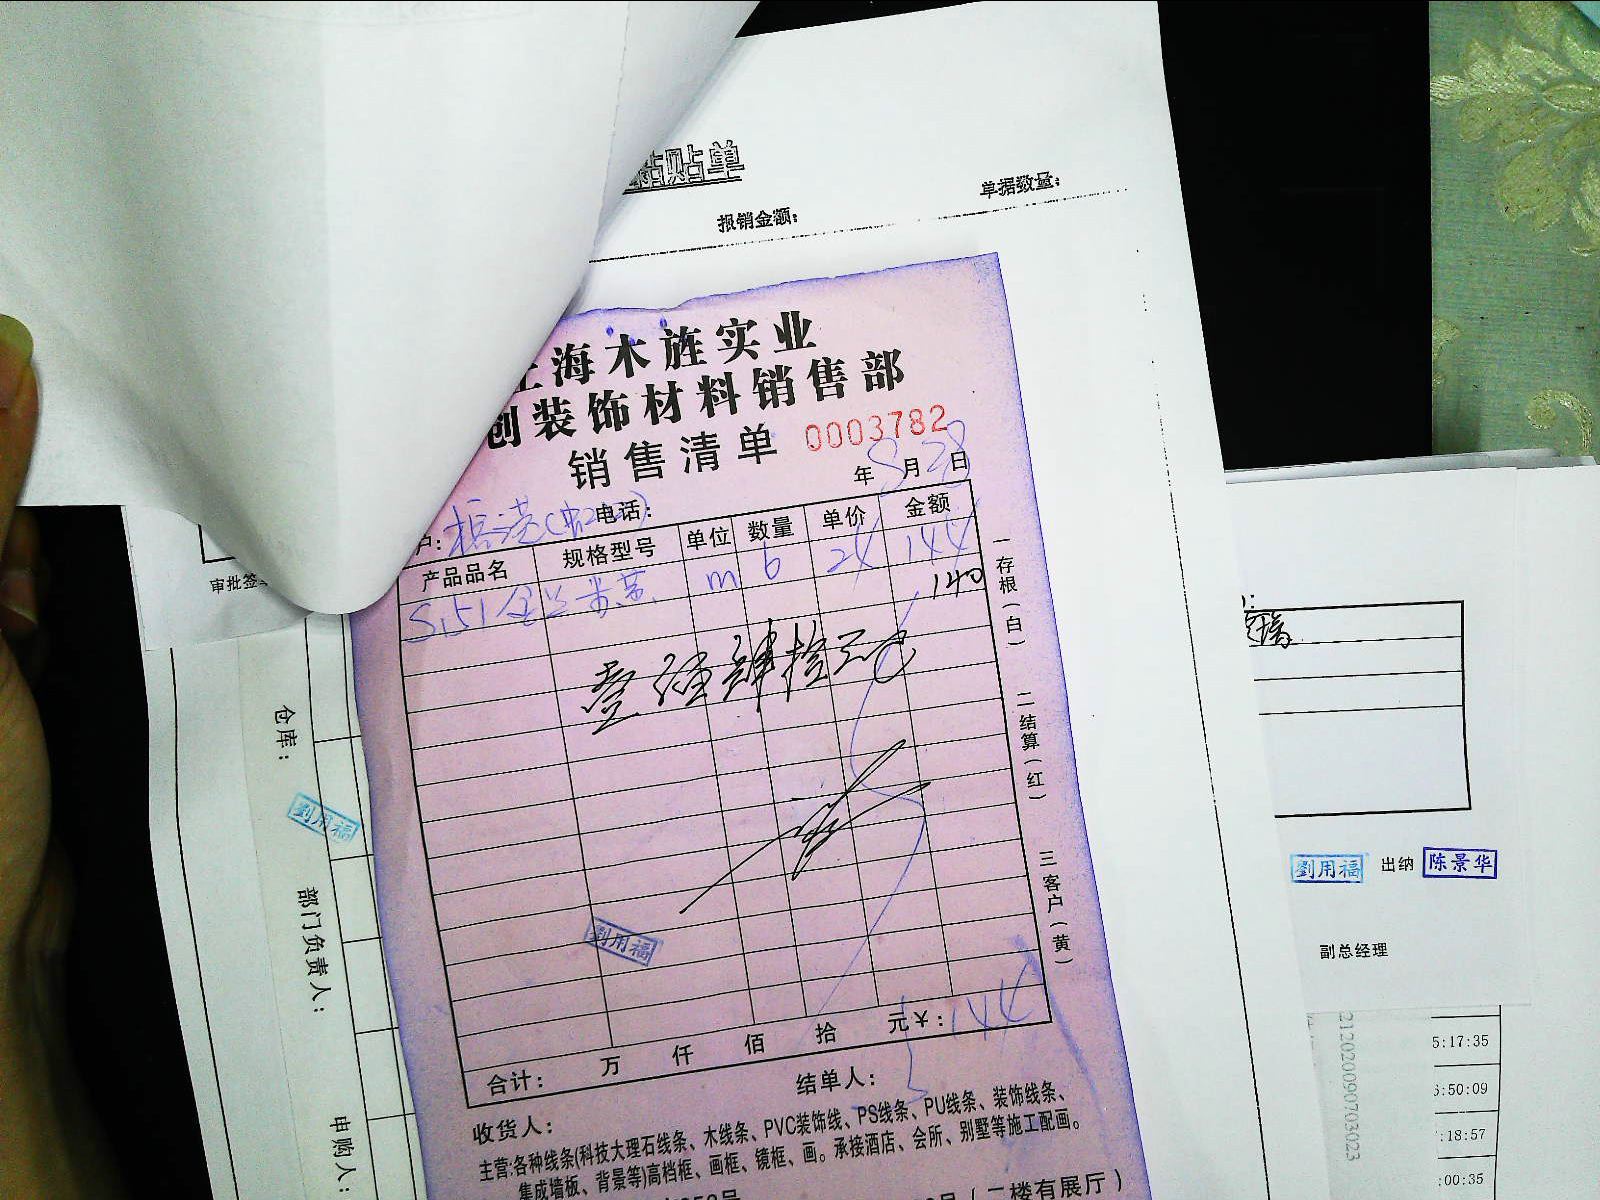 粘贴单
单据数量：
报销金额：
上海木旌实业
创装饰材料销售部
销售清单 0003782
年 8月28日
户： 电话：
产品品名 规格型号 单位 数量 单价 金额
m 6 24 144
140
壹佰肆拾元
一存根（白） 二结算（红） 三客户（黄）
劉用福
合计： 万 仟 佰 拾 元￥：144
收货人： 结单人：
主营：各种线条(科技大理石线条、木线条、PVC装饰线、PS线条、PU线条、装饰线条、
集成墙板、背景等)高档框、画框、镜框、画。承接酒店、会所、别墅等施工配画。
（二楼有展厅）
审批签
仓库：
劉用福
部门负责人：
申购人：
劉用福 出纳 陈景华
副总经理
212020090703023
5:17:35
:50:09
:18:57
:00:35